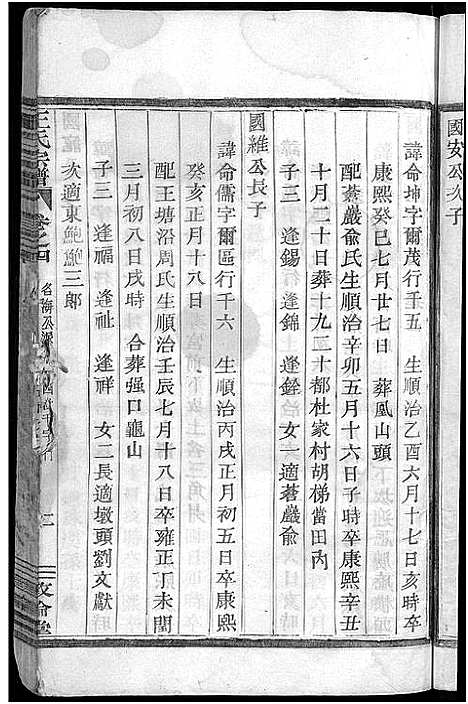 國安公次子
諱命坤字爾茂行千五　生順治乙酉六月十七日亥時卒
康熙癸巳七月廿七日　葬鳳山頭
配蒼巖俞氏生順治辛卯五月十六日子時卒康熙辛丑
十月二十日葬十九二十都杜家村胡梯當田內
子三　逢錫　逢錦　逢銓　女一適蒼巖俞
國維公長子
諱命儒字爾區行千六　生順治丙戌正月初五日卒康熙
癸亥正月十八日
配王塘沿周氏生順治壬辰七月十八日卒雍正丁未閏
三月初八日戌時　合葬强口龜山
子三　逢福　逢祉　逢祥　女二長適墩頭劉文獻
次適東鮑鮑三郎
王氏宗譜　卷之四
名海公